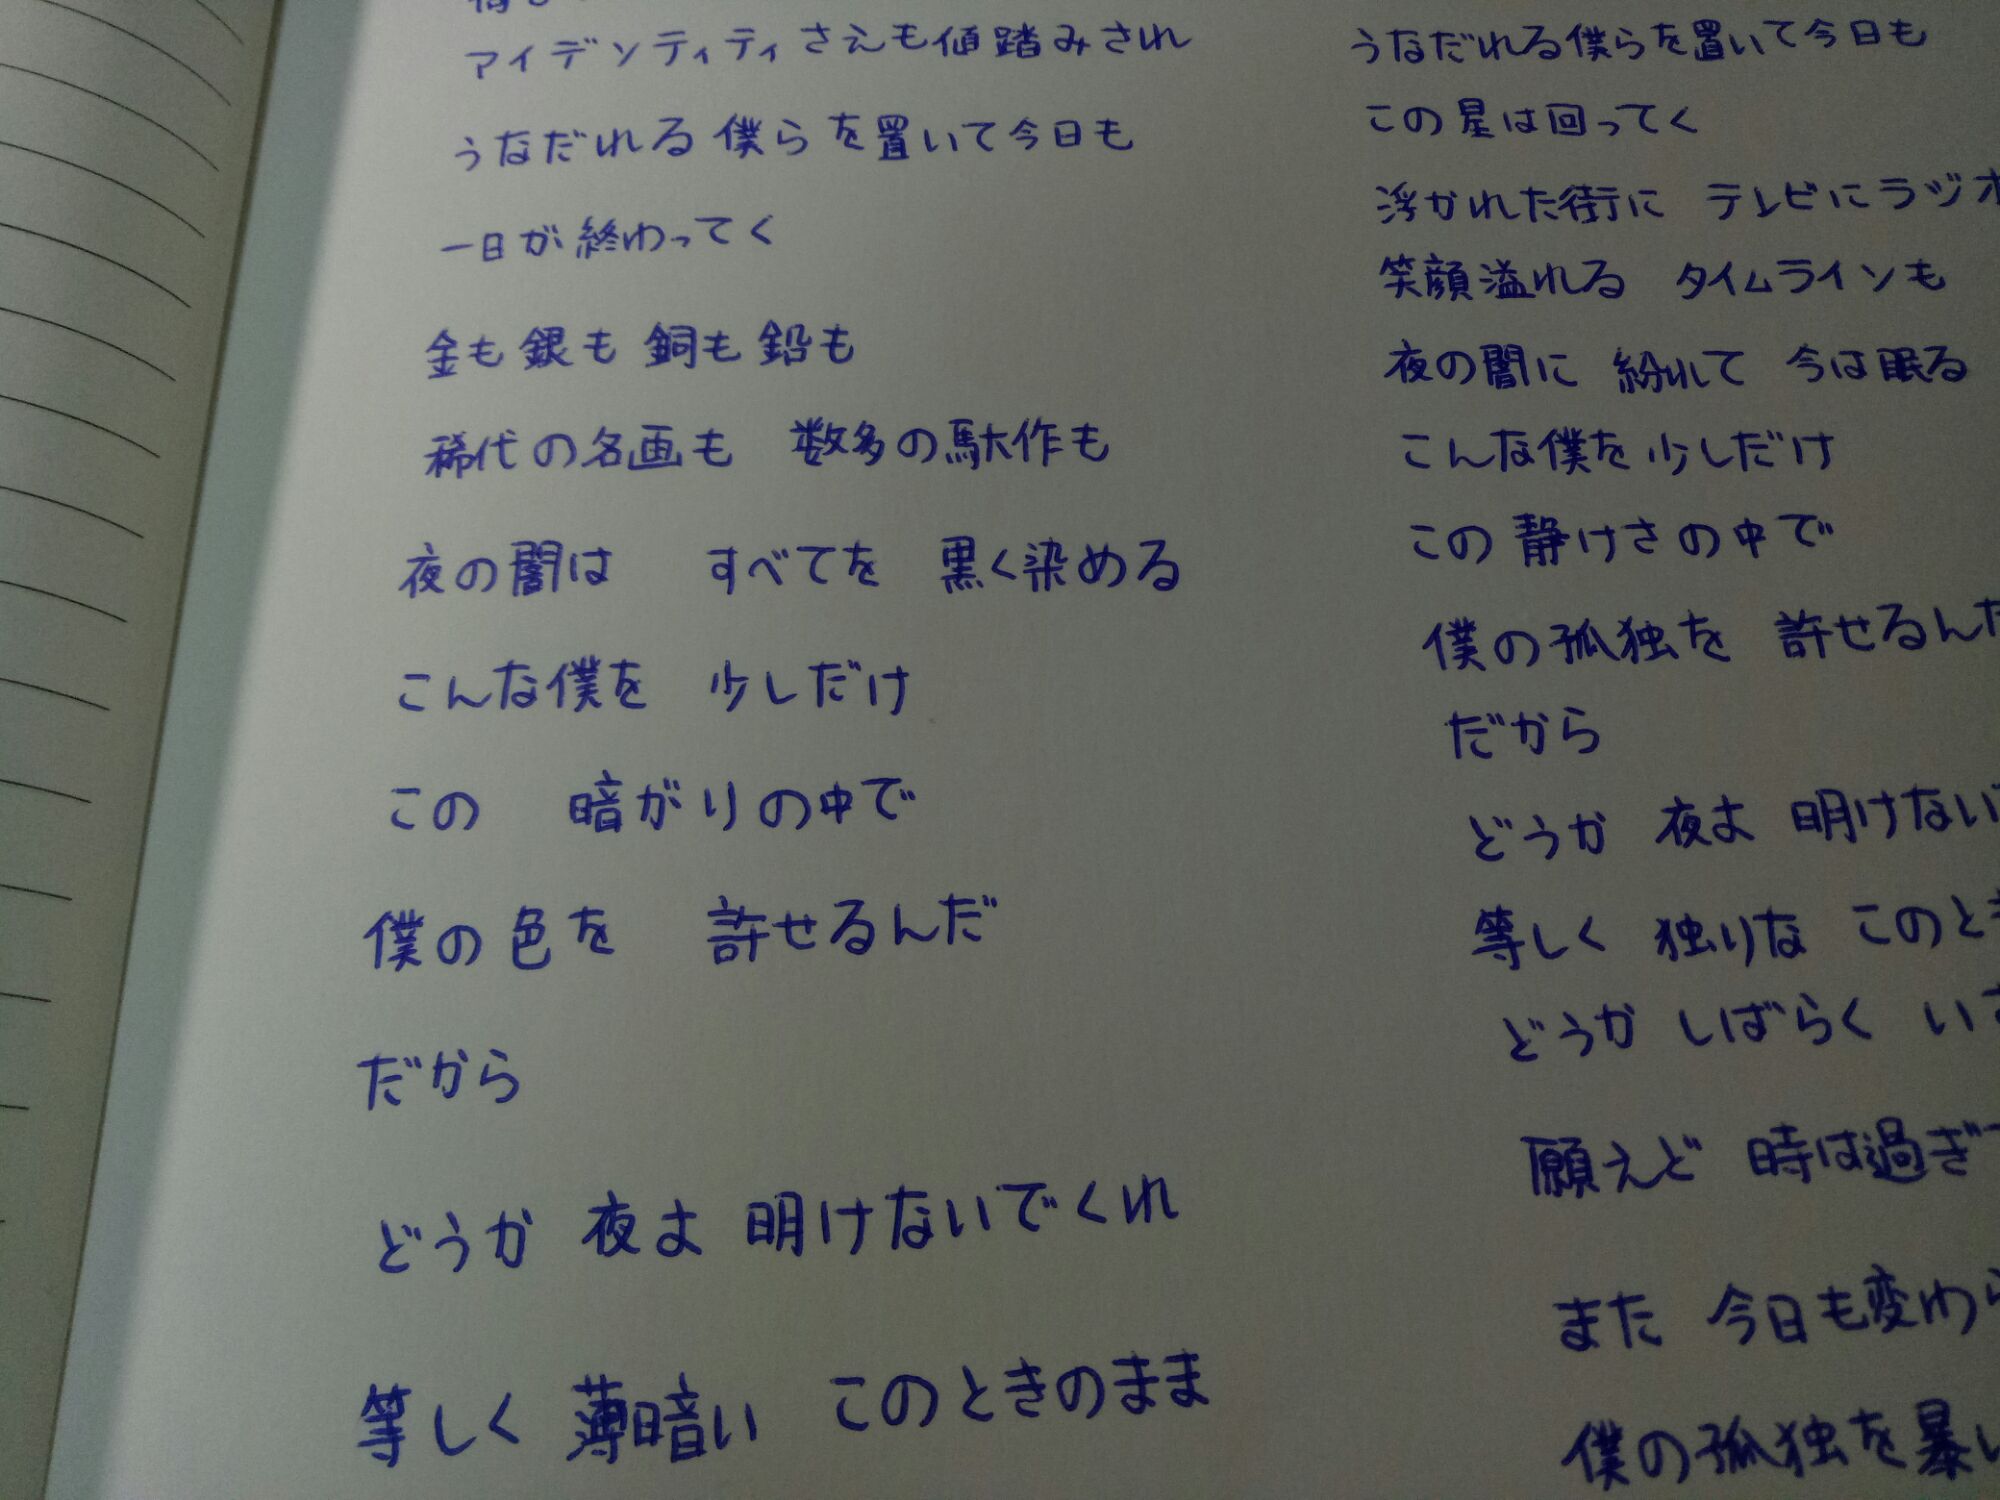 アイデンティティさえも値踏みされ
うなだれる僕らを置いて今日も
一日が終わってく
金も銀も銅も鉛も
稀代の名画も 数多の駄作も
夜の闇は すべてを 黒く染める
こんな僕を 少しだけ
この 暗がりの中で
僕の色を 許せるんだ
だから
どうか 夜よ 明けないでくれ
等しく 薄暗い このときのまま
うなだれる僕らを置いて今日も
この星は回ってく
浮かれた街に テレビにラジオ
笑顔溢れる タイムラインも
夜の闇に 紛れて 今は眠る
こんな僕を少しだけ
この静けさの中で
僕の孤独を 許せるんだ
だから
どうか 夜よ 明けない
等しく 独りな このとき
どうか しばらく い
願えど 時は過ぎ
また 今日も変わら
僕の孤独を暴い